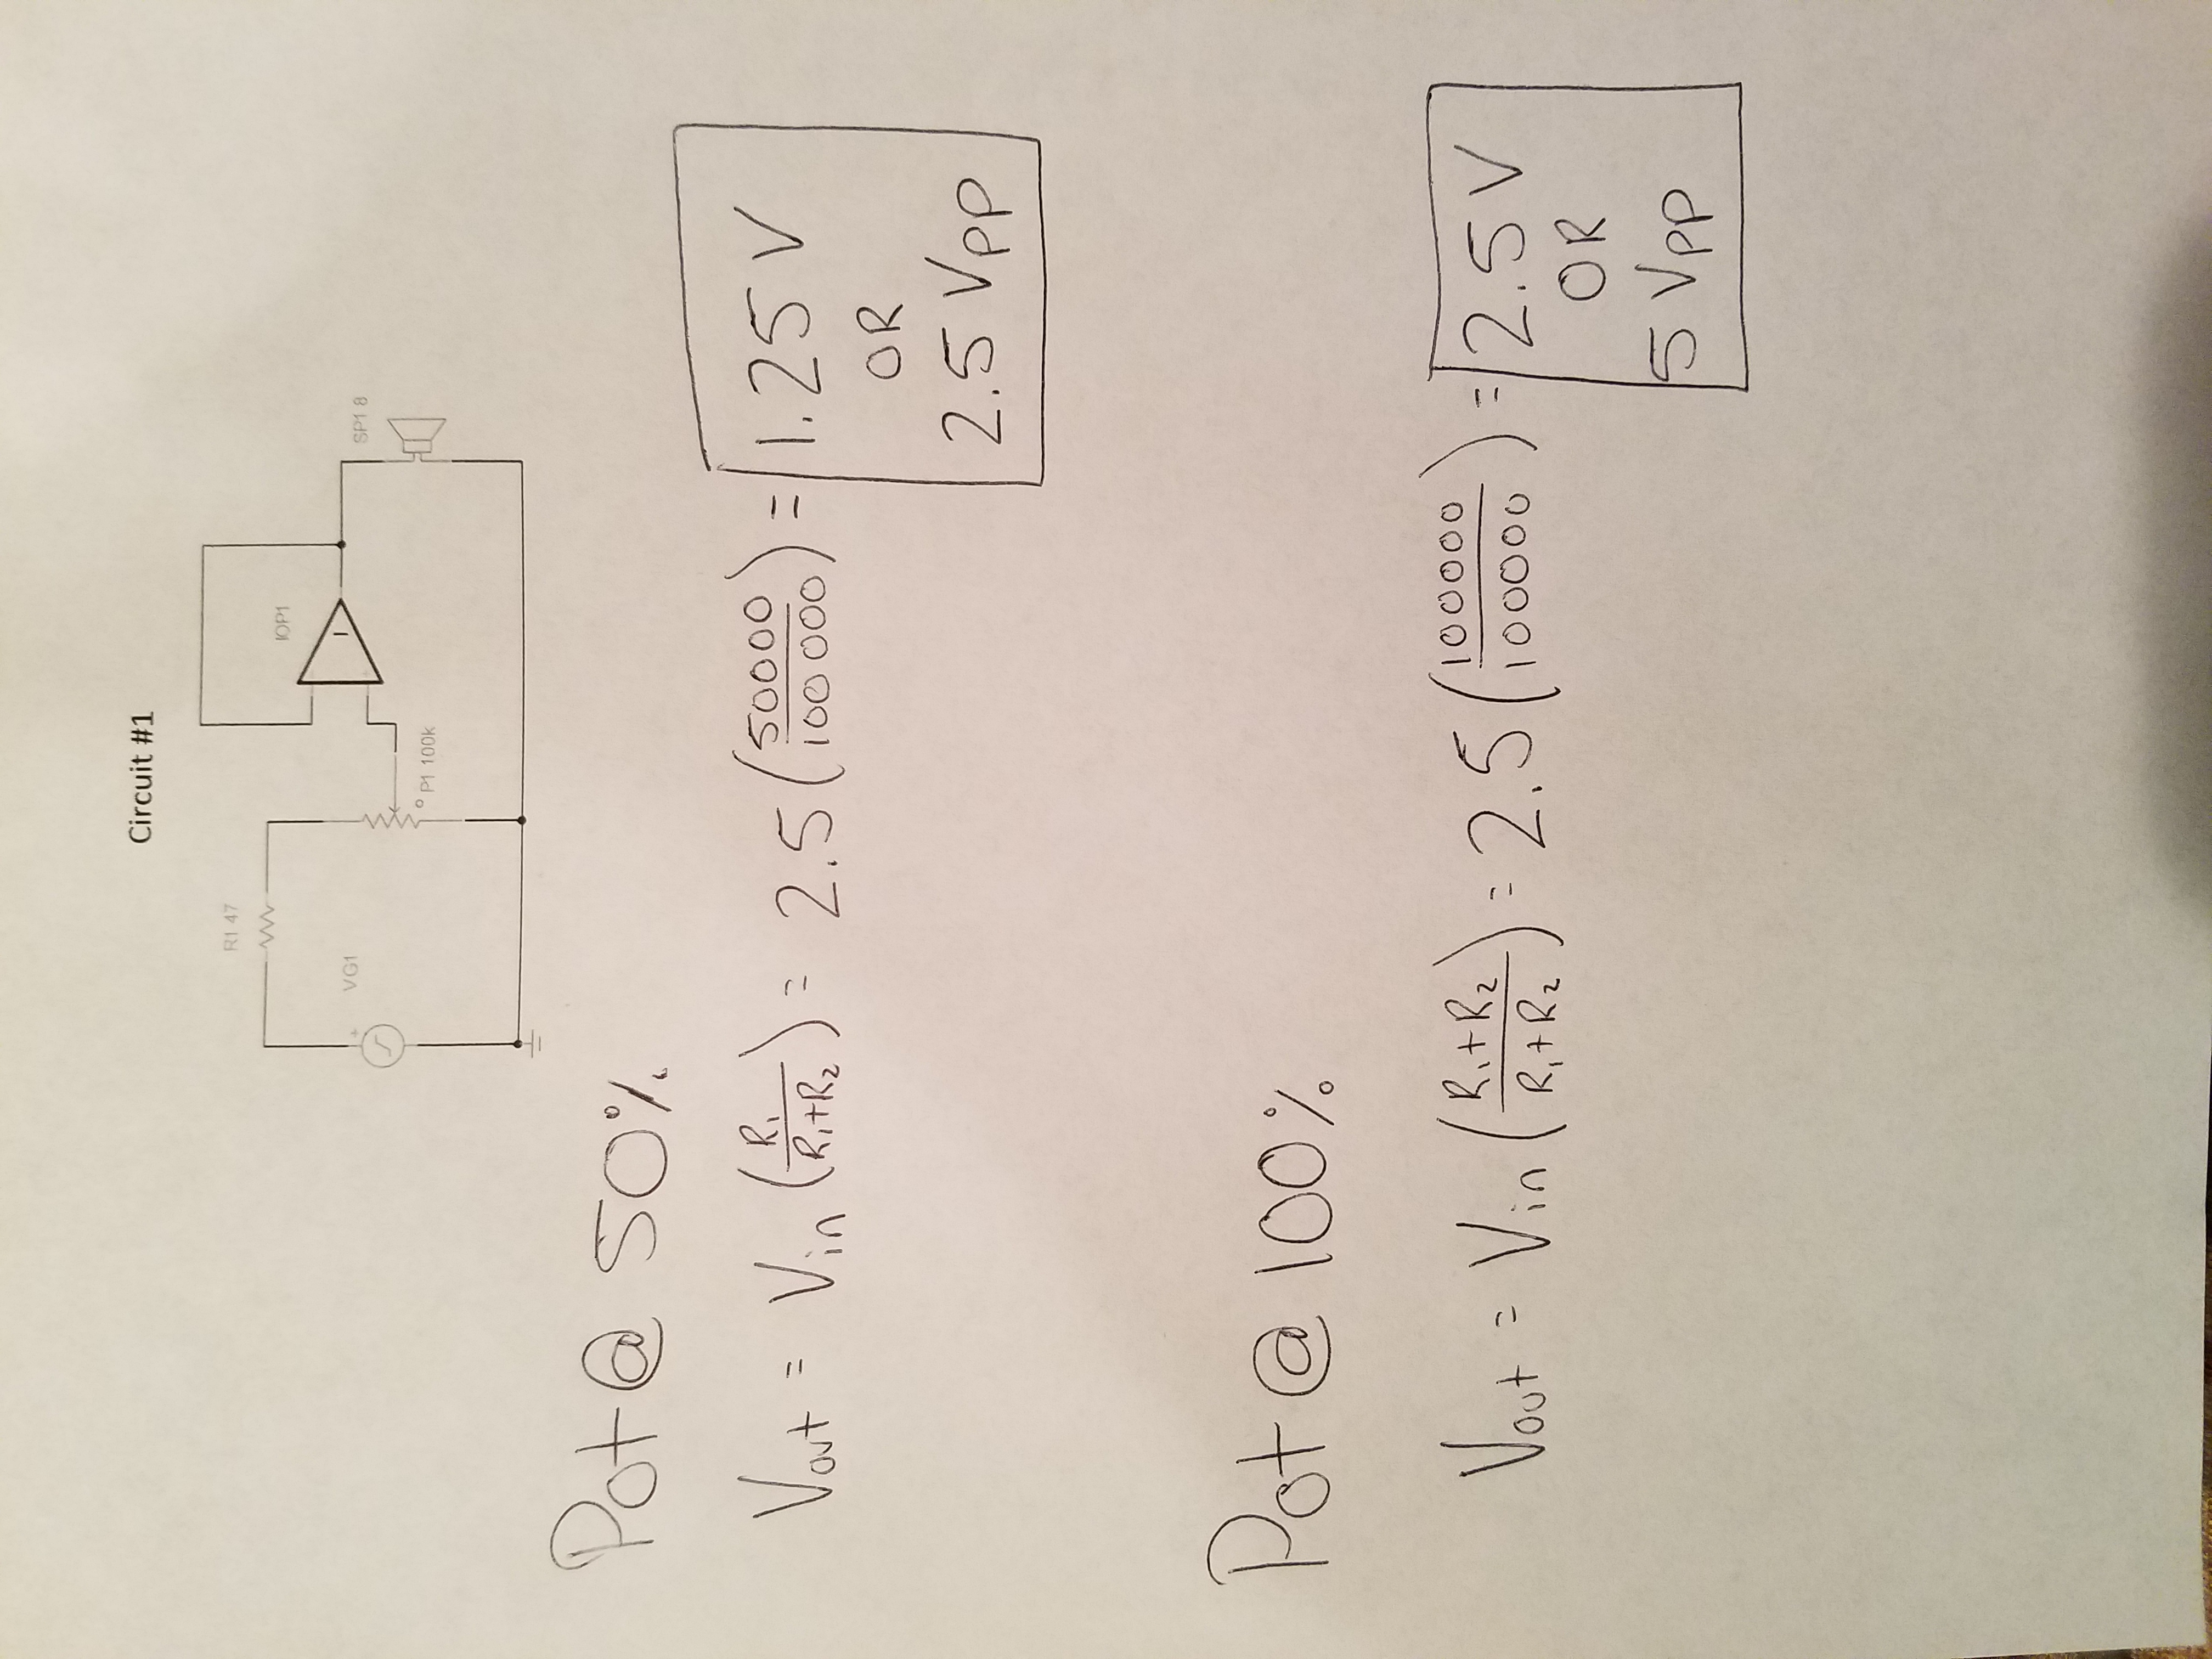 Circuit #1
R1 47
IOP1
VG1
+
SP1 8
P1 100k
Pot @ 50%
Vout = Vin (R1/R1+R2) = 2.5 (50000/100 000) = 1.25 V
OR
2.5 Vpp
Pot @ 100%
Vout = Vin (R1+R2/R1+R2) = 2.5 (100000/100000) = 2.5 V
OR
5 Vpp